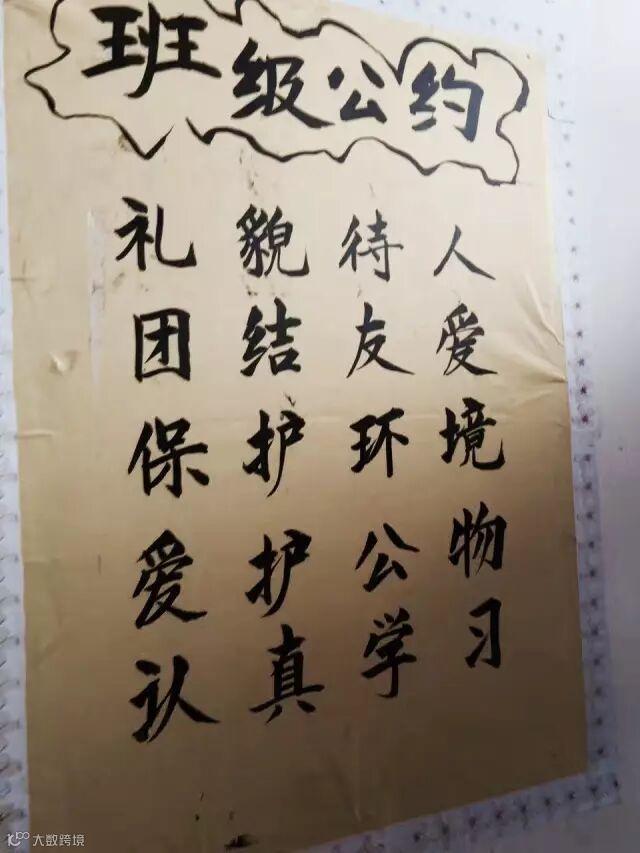 班级公约
礼貌待人
团结友爱
保护环境
爱护公物
认真学习
大数跨境